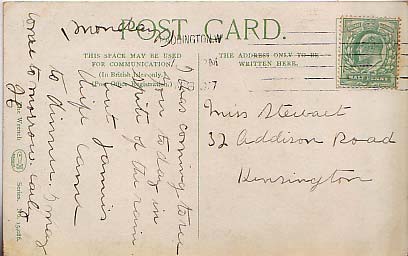 POST CARD.
THIS SPACE MAY BE USED
FOR COMMUNICATION
(In British Isles only.)
(Post Office Regulation).
THE ADDRESS ONLY TO BE
WRITTEN HERE.
PADDINGTON.W
HALFPENNY
Monday
I was coming to see
you to day in
spite of the rain
but
came
to dinner. I may
come to morrow. only
Miss Stewart
32 Addison Road
Kensington
Wrench
Series. No.